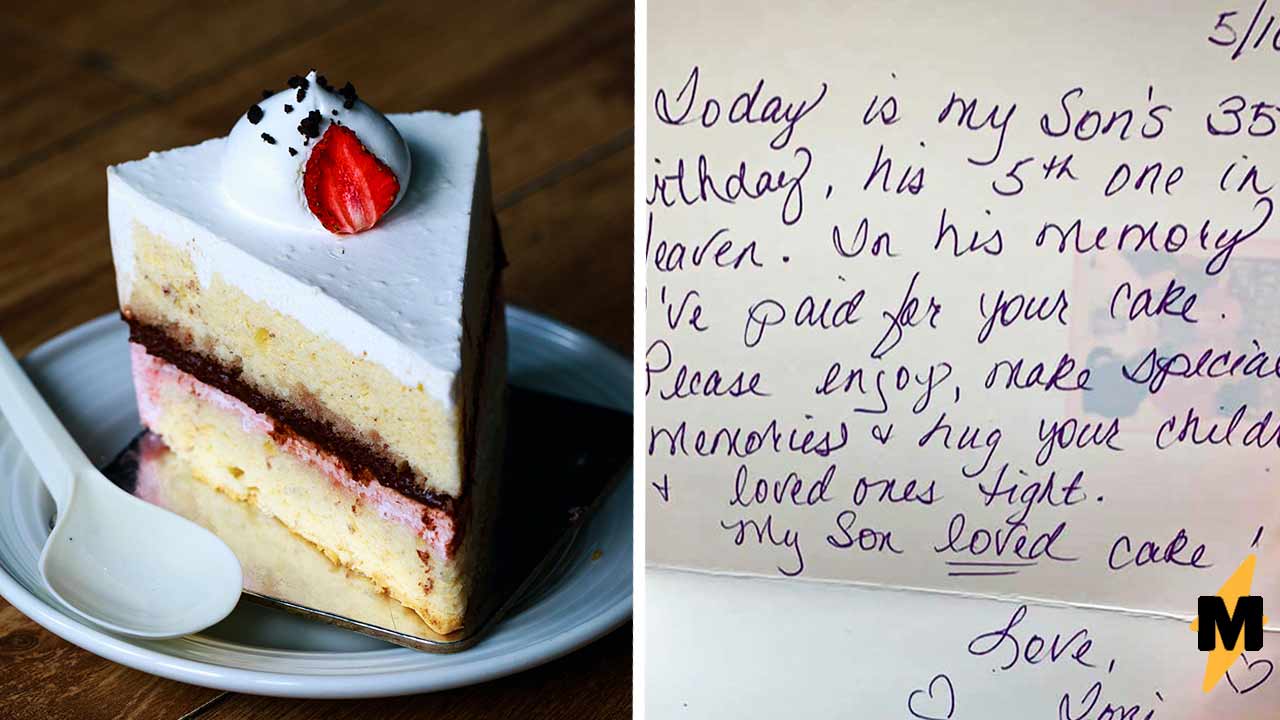 5/10
Today is my Son's 35
irthday, his 5th one in
eaven. In his memory
I've paid for your cake.
Please enjoy, make special
memories & hug your child
& loved ones tight.
My Son loved cake!
Love,
Toni
M